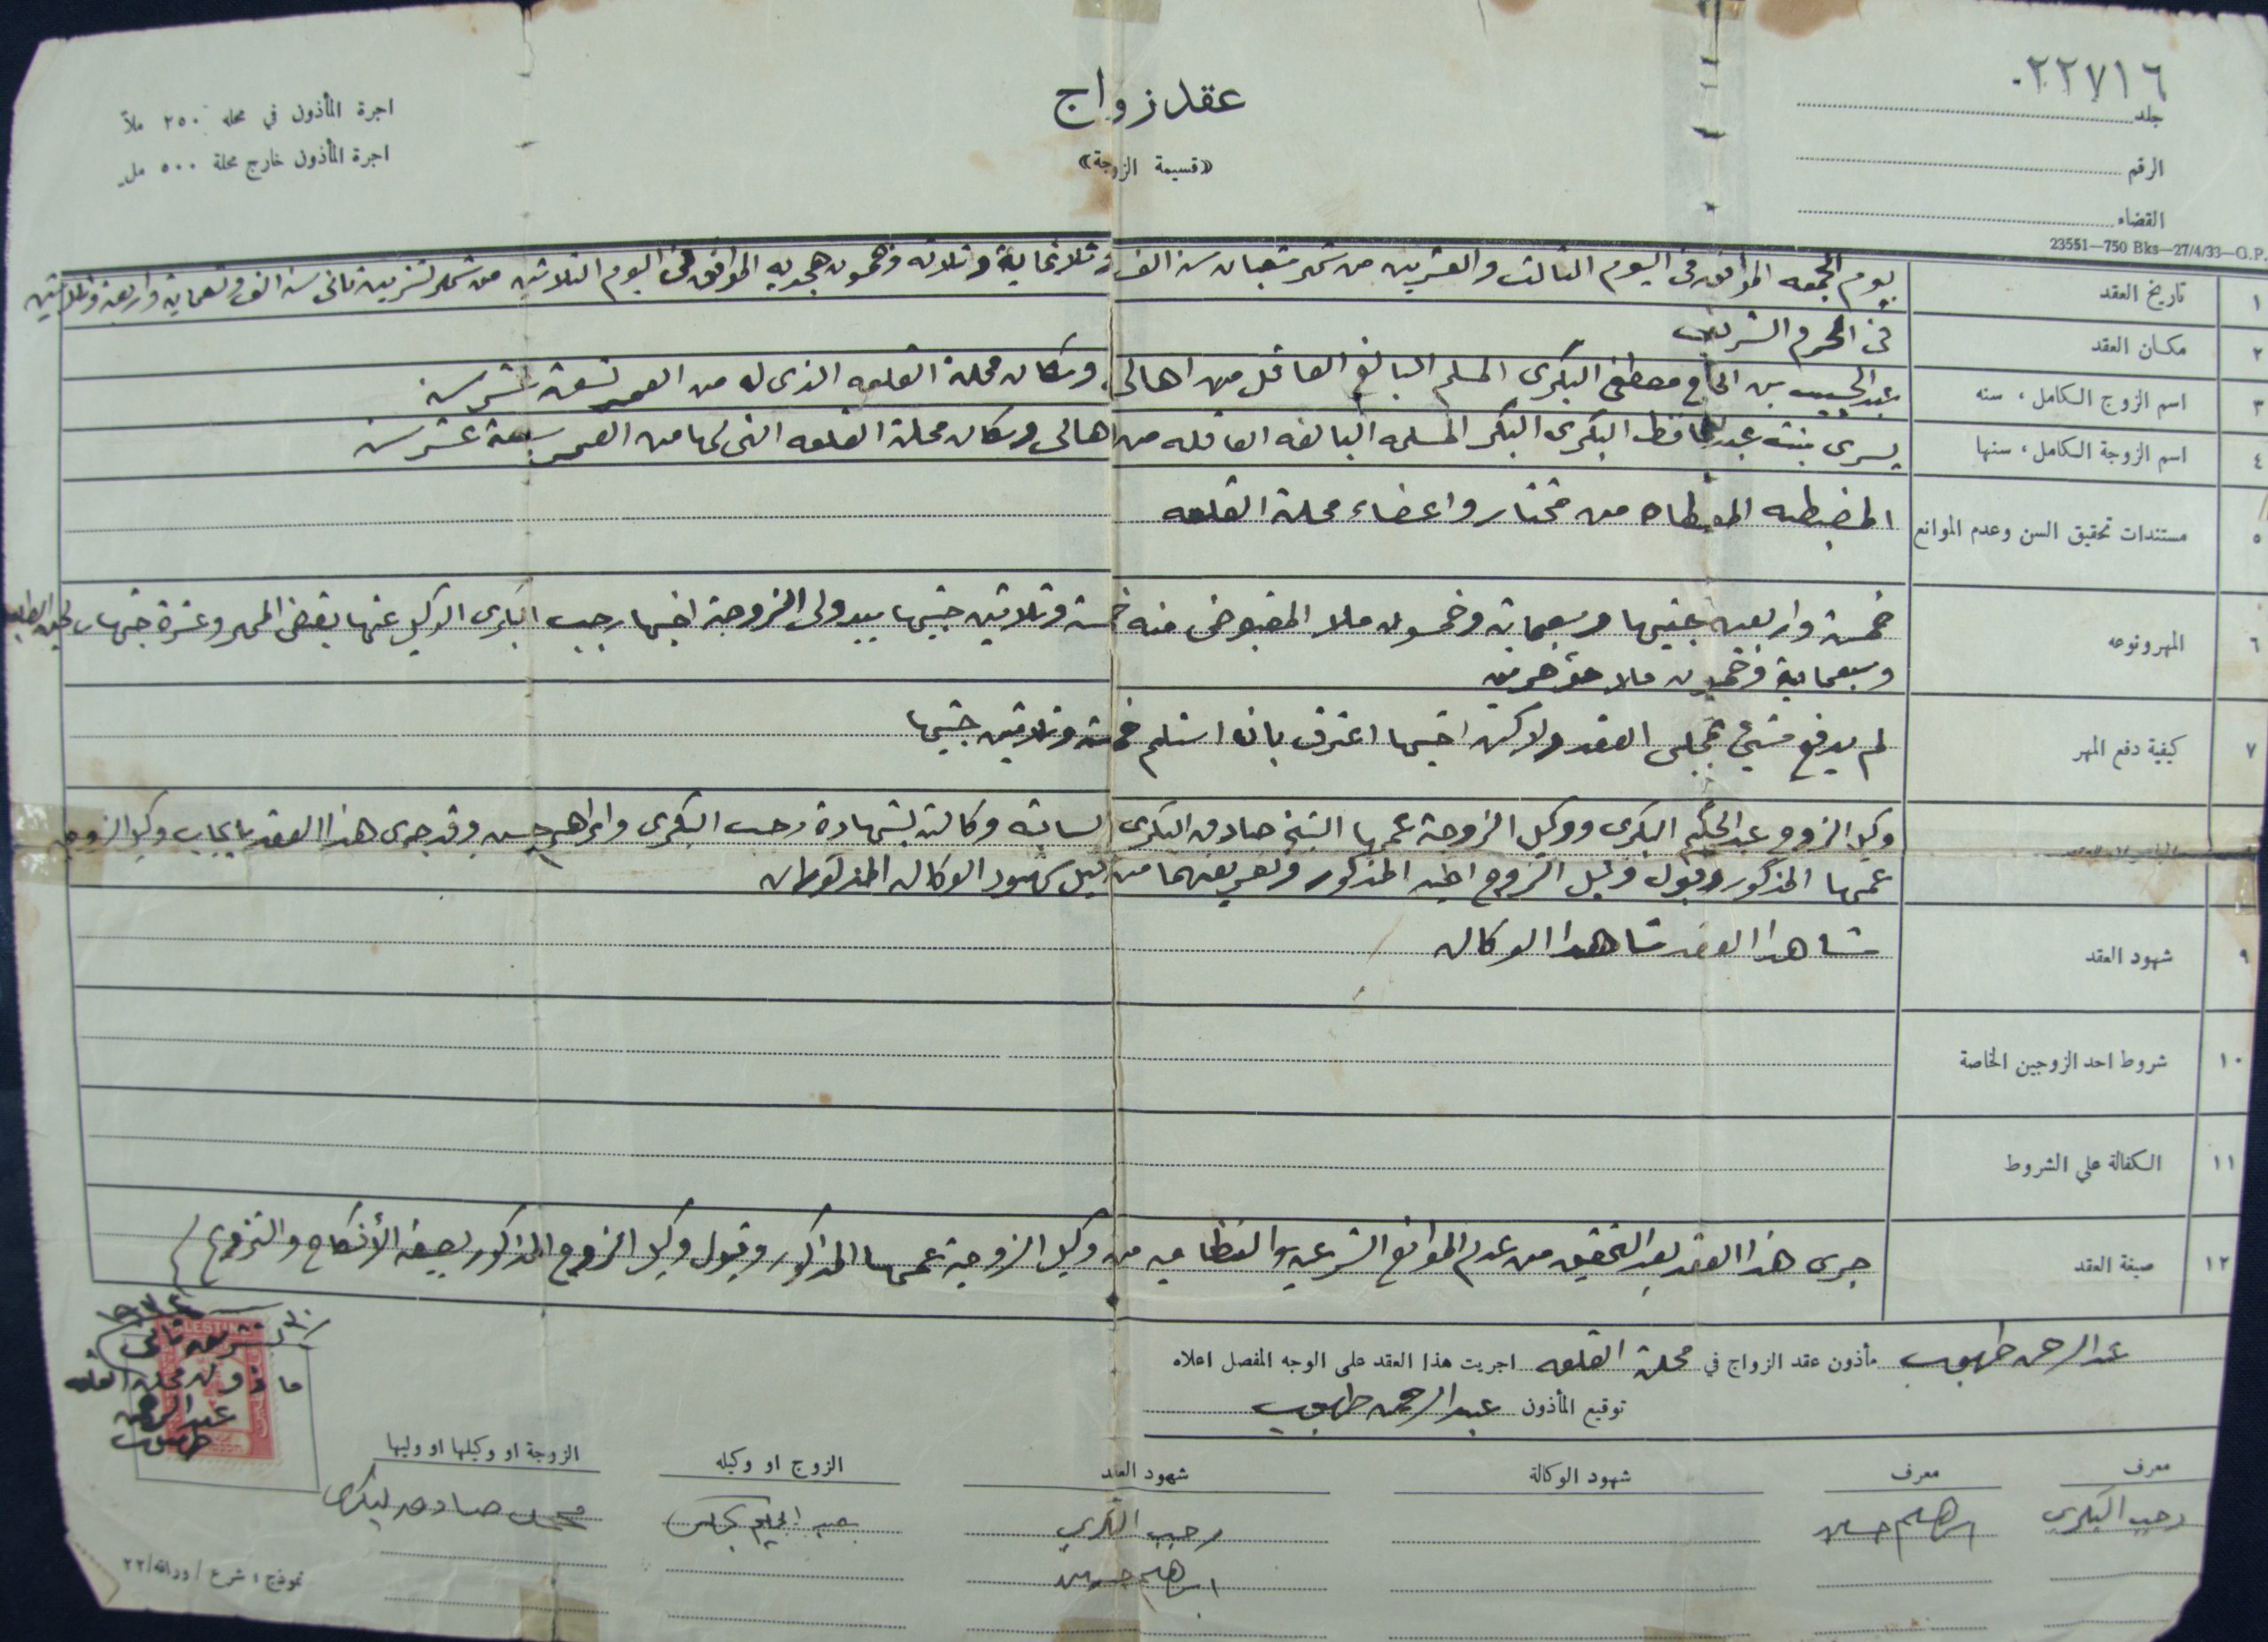 ٠٢٢٧١٦
جلد
الرقم
القضاء
23551—750 Bks—27/4/33—G.P.
عقد زواج
«قسيمة الزوجة»
اجرة المأذون في محله ٢٥٠ ملاً
اجرة المأذون خارج محلة ٥٠٠ مل
١ تاريخ العقد
يوم الجمعه الموافق في اليوم الثالث والعشرين من شهر شعبان سنة الف وثلاثماية وثلاثه وخمسون هجريه الموافق في اليوم الثلاثين من شهر تشرين ثاني سنة الف وتسعماية واربعة وثلاثين
٢ مكان العقد
في الحرم الشريف
٣ اسم الزوج الكامل ، سنه
عبد الحسيب بن الحاج مصطفى البكري المسلم البالغ العاقل من اهالي وسكان محلة القلعه الذي له من العمر تسعة عشر سنه
٤ اسم الزوجة الكامل ، سنها
يسرى بنت عبد الحافظ البكري البكر المسلمه البالغه العاقله من اهالي وسكان محلة القلعه التي لها من العمر سبعة عشر سنه
٥ مستندات تحقيق السن وعدم الموانع
المضبطه المعطاه من مختار واعضاء محلة القلعه
٦ المهر ونوعه
خمسة واربعين جنيها وسبعماية وخمسون ملا المقبوض منه خمسة وثلاثين جنيها بيد ولي الزوجة اخيها رجب البكري الوكيل عنها بقبض المهر وعشرة جنيهات
وسبعماية وخمسون ملا مؤخرين
٧ كيفية دفع المهر
لم يدفع شيئ بمجلس العقد ولاكن اخيها اعترف بانه استلم خمسة وثلاثين جنيها
وكيل الزوج عبد الحكيم البكري ووكيل الزوجة عمها الشيخ صادق البكري الثابته وكالته بشهادة رجب البكري وابراهيم حسين وقد جرى هذا العقد بايجاب وكيل الزوجه
عمها المذكور وقبول وكيل الزوج اخيه المذكور وتعريفهما من قبل شهود الوكاله المذكوران
٩ شهود العقد
شاهدا العقد شاهدا الوكاله
١٠ شروط احد الزوجين الخاصة
١١ الكفالة على الشروط
١٢ صيغة العقد
جرى هذا العقد بعد التحقيق من عدم الموانع الشرعيه والنظاميه من وكيل الزوجة عمها المذكور وقبول وكيل الزوج المذكور بصيغة الأنكاح والتزويج
عبد الرحمن طهبوب مأذون عقد الزواج في محلة القلعه اجريت هذا العقد على الوجه المفصل اعلاه
توقيع المأذون عبد الرحمن طهبوب
PALESTINE
تشرين ثاني
مأذون محلة القلعه
عبد الرحمن
طهبوب
معرف معرف شهود الوكالة شهود العقد الزوج او وكيله الزوجة او وكيلها او وليها
رجب البكري ابراهيم حسين رجب البكري عبد الحكيم البكري محمد صادق البكري
ابراهيم حسين
نموذج : شرع / وراقة / ٢٢